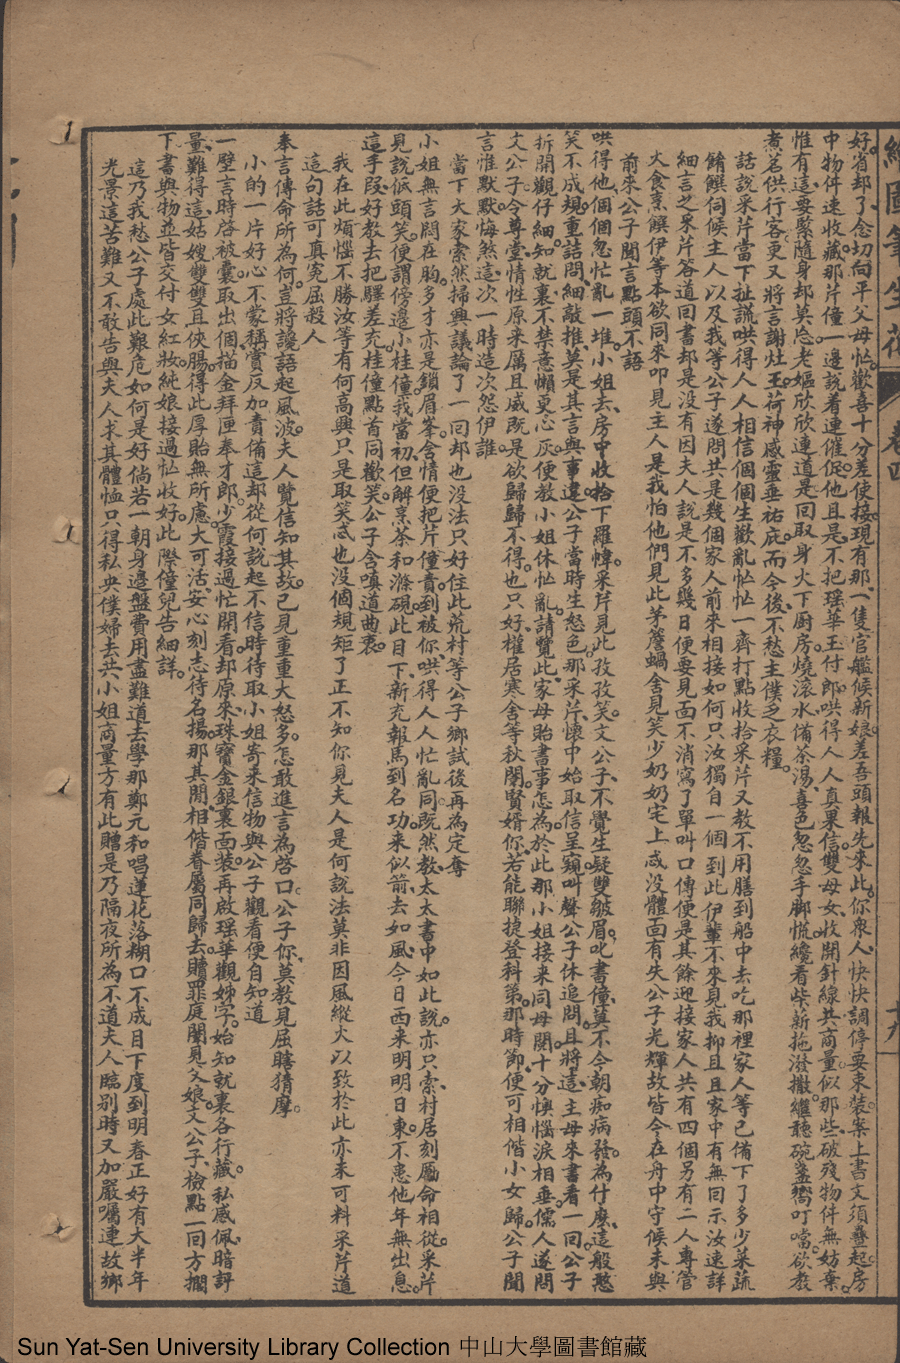 繪圖筆生花
卷四
十九
好省却了念切向平父母忙歡喜十分差使接現有那一隻官艦候新娘差吾頭報先來此你衆人快快調停要束裝案上書文須疊起房
中物件速收藏那芹僮一邊説着連催促他且是不把瑶華玉付郎哄得人人真果信雙母女收開針線共商量似那些破殘物件無妨棄
惟有這要緊隨身却莫忘老嫗欣欣連道是回取身火下厨房燒滚水備茶湯喜色怱怱手脚慌纔看柴薪拖潑撒繼聽碗盞嚮叮噹欲教
煮茗供行客更又將言謝灶王荷神感靈垂祐庇而今後不愁主僕乏衣糧
話説采芹當下扯謊哄得人人相信個個生歡亂忙忙一齊打點收拾采芹又教不用膳到船中去吃那裡家人等已備下了多少菜蔬
餚饌伺候主人以及我等公子遂問共是幾個家人前來相接如何只汝獨自一個到此伊輩不來見我抑且且家中有無回示汝速詳
細言之采芹答道回書却是没有因夫人説是不多幾日便要見面不消寫了單叫口傳便是其餘迎接家人共有四個另有二人專管
火食烹饌伊等本欲同來叩見主人是我怕他們見此茅簷蝸舍見笑少奶奶宅上忒没體面有失公子光輝故皆令在舟中守候未與
前來公子聞言點頭不語
哄得他個個忽忙亂一堆小姐去房中收拾下羅幃采芹見此孜孜笑文公子不覺生疑雙皺眉叱書僮莫不今朝痴病發為什麽這般憨
笑不成規重詰問細敲推莫是其言與事違公子當時生怒色那采芹懷中始取信呈窺叫聲公子休追問且將這主母來書看一回公子
拆開觀仔細知就裏不禁意懶更心灰便教小姐休忙亂請覽此家母貽書事怎為於此那小姐接来同母閲十分懊惱淚相垂儒人遂問
文公子令尊堂情性原来厲且威既是欲歸歸不得也只好權居寒舍等秋闈賢婿你若能聯捷登科第那時節便可相偕小女歸公子聞
言惟默默悔煞這次一時造次怨伊誰
當下大家索然掃興議論了一回却也没法只好住此荒村等公子鄉試後再為定奪
小姐無言悶在胸多才亦是鎖眉峯含情便把芹僮責到被你哄得人人忙亂同既然教太太書中如此説亦只索村居刻勵命相從采芹
見説低頭笑便謂傍邊小桂僮我當初但解烹茶和滌硯此目下新充報馬到名功来似箭去如風今日西来明明日東不患他年無出息
這手段好教去把驛差充桂僮點首同歡笑公子含嗔道曲衷
我在此煩惱不勝汝等有何高興只是取笑忒也没個規矩了正不知你見夫人是何説法莫非因風縱火以致於此亦未可料采芹道
這句話可真寃屈殺人
奉言傳命所為何豈將讒語起風波夫人覽信知其故已見重重大怒多怎敢進言為啓口公子你莫教見屈瞎猜摩
小的一片好心不蒙稱賞反加責備這却從何説起不信時待取小姐寄来信物與公子觀看便自知道
一壁言時啓被囊取出個描金拜匣奉才郎少霞接過忙開看却原來珠寶金銀裏面装再啟瑶華觀姊字始知就裏各行藏私感佩暗評
量難得這姑嫂雙雙且俠腸得此厚貽無所慮大可活安心刻志待名揚那其閒相偕眷屬同歸去贖罪庭闈見父娘文公子檢點一回方擱
下書與物並皆交付女紅妝純娘接過忙收好此際僮兒告細詳
這乃我愁公子處此艱危如何是好倘若一朝身邊盤費用盡難道去學那鄭元和唱蓮花落糊口不成目下度到明春正好有大半年
光景這苦難又不敢告與夫人求其體恤只得私央僕婦去共小姐商量方有此贈是乃隔夜所為不道夫人臨别時又加嚴囑連故鄉
Sun Yat-Sen University Library Collection 中山大學圖書館藏